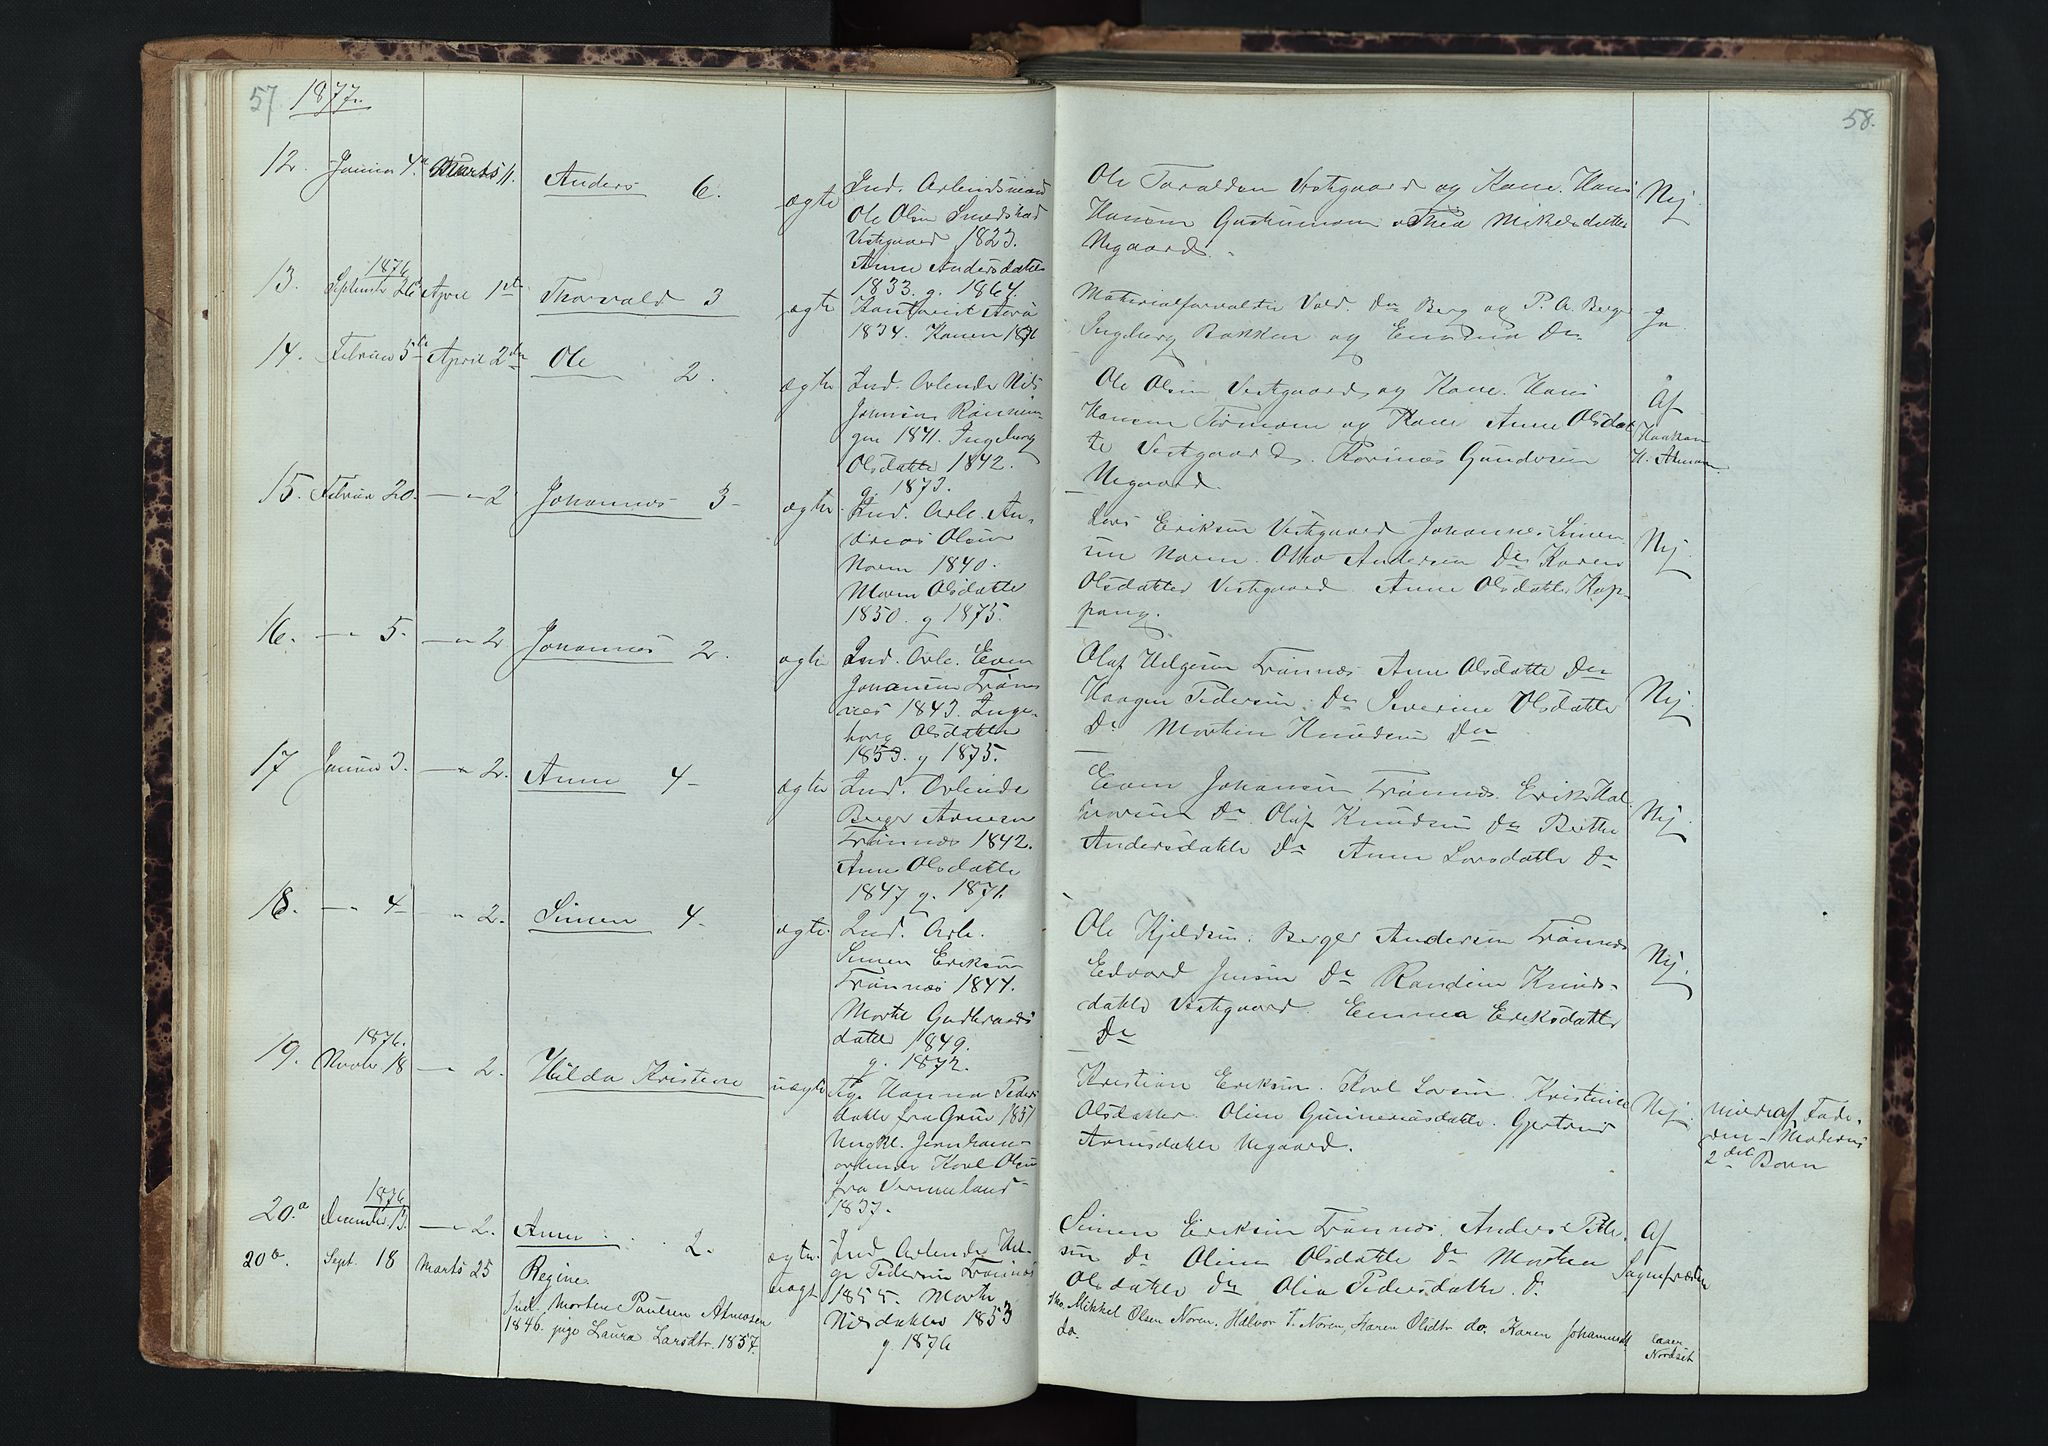 57 1877.
58.
12. Januar 4. Marts 11. Anders 6. ægte
Ind. Arbeidsmand
Ole Olsen
Vestgaard 1823.
Anne Andersdatter
1833. g. 1864.
Ole Taraldsen Vestgaard og Kone. Hans
Hansen Thea Mikkelsdatter
Negaard.
Nej
13. 1876 September 26 April 1ste Thorvald 3 ægte
1834. Karen 1836
Materialforvalter Vald. Do Berg og P. A. Berg
Ingeborg Bakken og Emma Do
Ja
14. Februar 5te April 2den Ole 2. ægte
Ind. Arbeider Nils
Johnsen Rønnin-
gen 1841. Ingeborg
Olsdatter 1842.
g. 1873.
Ole Olsen Vestgaard og Kone. Hans
Hansen og Kone Anne Olsdat
ter Vestgaard. Gundersen
Negaard.
Af
Haakon
H. Atneosen
15. Februar 20. — " 2 Johannes 3 - ægte
Ind. Arb. An-
dreas Olsen
Noren 1840.
Maren Olsdatter
1850. g 1875.
Lars Eriksen Vestgaard Johannes Simen
sen Noren. Otto Andersen Do Karen
Olsdatter Vestgaard Anne Olsdatter Kop-
pang.
Nej
16. — " 5. — " 2 Johannes 2. ægte
Ind. Arb. Even
Johansen Trøn-
næs 1843. Inge-
borg Olsdatter
1853. g 1875.
Olaf Helgesen Trønnæs Anne Olsdatter Do
Haagen Pedersen Do Severine Olsdatter
Do Morten Knudsen Do
Nej
17 Januar 3. — " 2. Anne 4 - ægte
Ind. Arbeider
Berger Arnesen
Trønnæs 1842.
Anne Olsdatter
1847 g. 1871.
Even Johansen Trønnæs. Erik Hal
vorsen Do Olaf Knudsen Do Berthe
Andersdatter Do Anne Larsdatter Do
Nej
18. — " 4 - — " 2. Simen 4 - ægte
Ind. Arb.
Simen Eriksen
Trønnæs 1844.
Marte Gudbrands
datter 1849.
g. 1872.
Ole Kjeldsen. Berger Andersen Trønnæs
Edvard Jensen Do Randine Knuds-
datter Vestgaard. Emma Eriksdatter
Do
Nej.
19. 1876. Novbr 18 — " 2. Hilda Kristine uægte
Pige Hanna Peders
datter fra Grue 1851
Ungkl. Jernbane-
arbeider Karl Olsen
fra Vermeland
1837.
Kristian Eriksen. Karl Larsen. Kristine
Olsdatter. Oline Gunneriusdatter. Gjertrud
Arnesdatter Negaard.
Nej.
af Fade-
ren - Moderens
2det Barn
20.a 1876 December 13. — " 2. Anne 2. ægte.
Ind. Arbeider Hel-
ge Pedersen Trønnæs
1855. Marte
Nilsdatter 1853
g. 1876
Simen Eriksen Trønnæs. Anders Peter-
sen Do Oline Olsdatter Do Marthea
Olsdatter Do Olia Pedersdatter. Do
Af
Sognepræsten
20b. Sept. 18 Marts 25 Regine. uægt
Ind. Morten Paulsen Atneosen
1846. pige Laura Larsdtr. 1857.
Mikkel Olsen Noren, Halvor T. Noren, Karen Olsdtr do. Karen Johannesdt
do.
Nordset